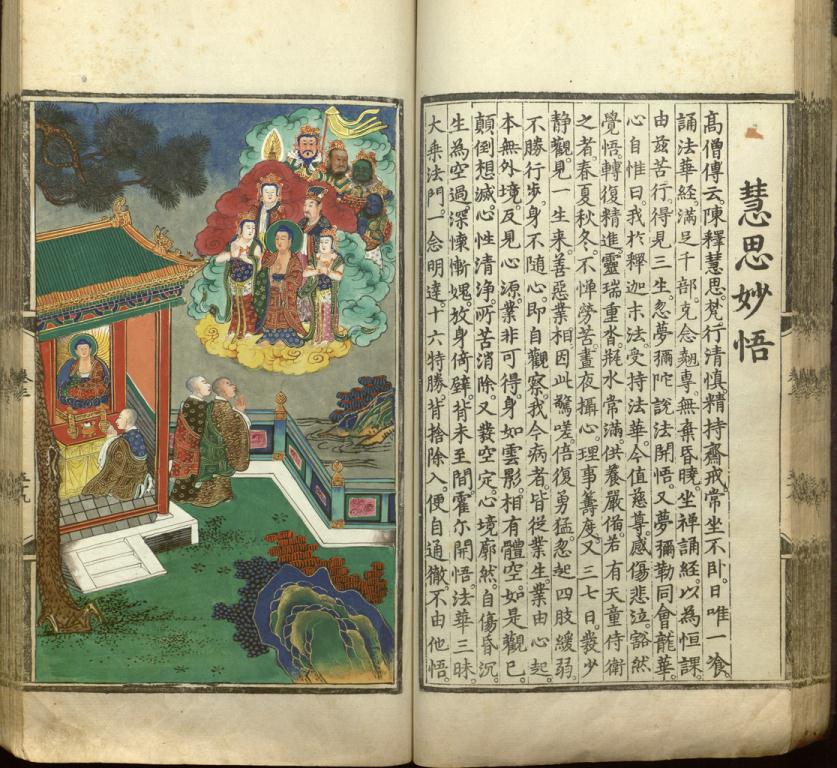 慧思妙悟
高僧傳云。陳釋慧思。梵行清慎。精持齋戒。常坐不卧。日唯一飡。
誦法華經。滿足千部。克念翹專。無棄昏曉。坐禪誦經。以為恒課。
由茲苦行。得見三生。忽夢彌陀說法開悟。又夢彌勒同會龍華。
心自惟曰。我於釋迦末法。受持法華。今值慈尊。感傷悲泣。豁然
覺悟。轉復精進。靈瑞重沓。缾水常滿。供養嚴備。若有天童侍衛
之者。春夏秋冬。不憚勞苦。晝夜攝心。理事籌度。又三七日。發少
静觀。見一生來。善惡業相。因此驚嗟。倍復勇猛。忽起四肢緩弱。
不勝行步。身不隨心。即自觀察。我今病者。皆從業生。業由心起。
本無外境。反見心源。業非可得。身如雲影。相有體空。如是觀已。
顛倒想滅。心性清浄。所苦消除。又發空定。心境廓然。自傷昏沉。
生為空過。深懷慚媿。放身倚壁。背未至間。霍尒開悟。法華三昧。
大乘法門。一念明達。十六特勝。背捨除入。便自通徹。不由他悟。